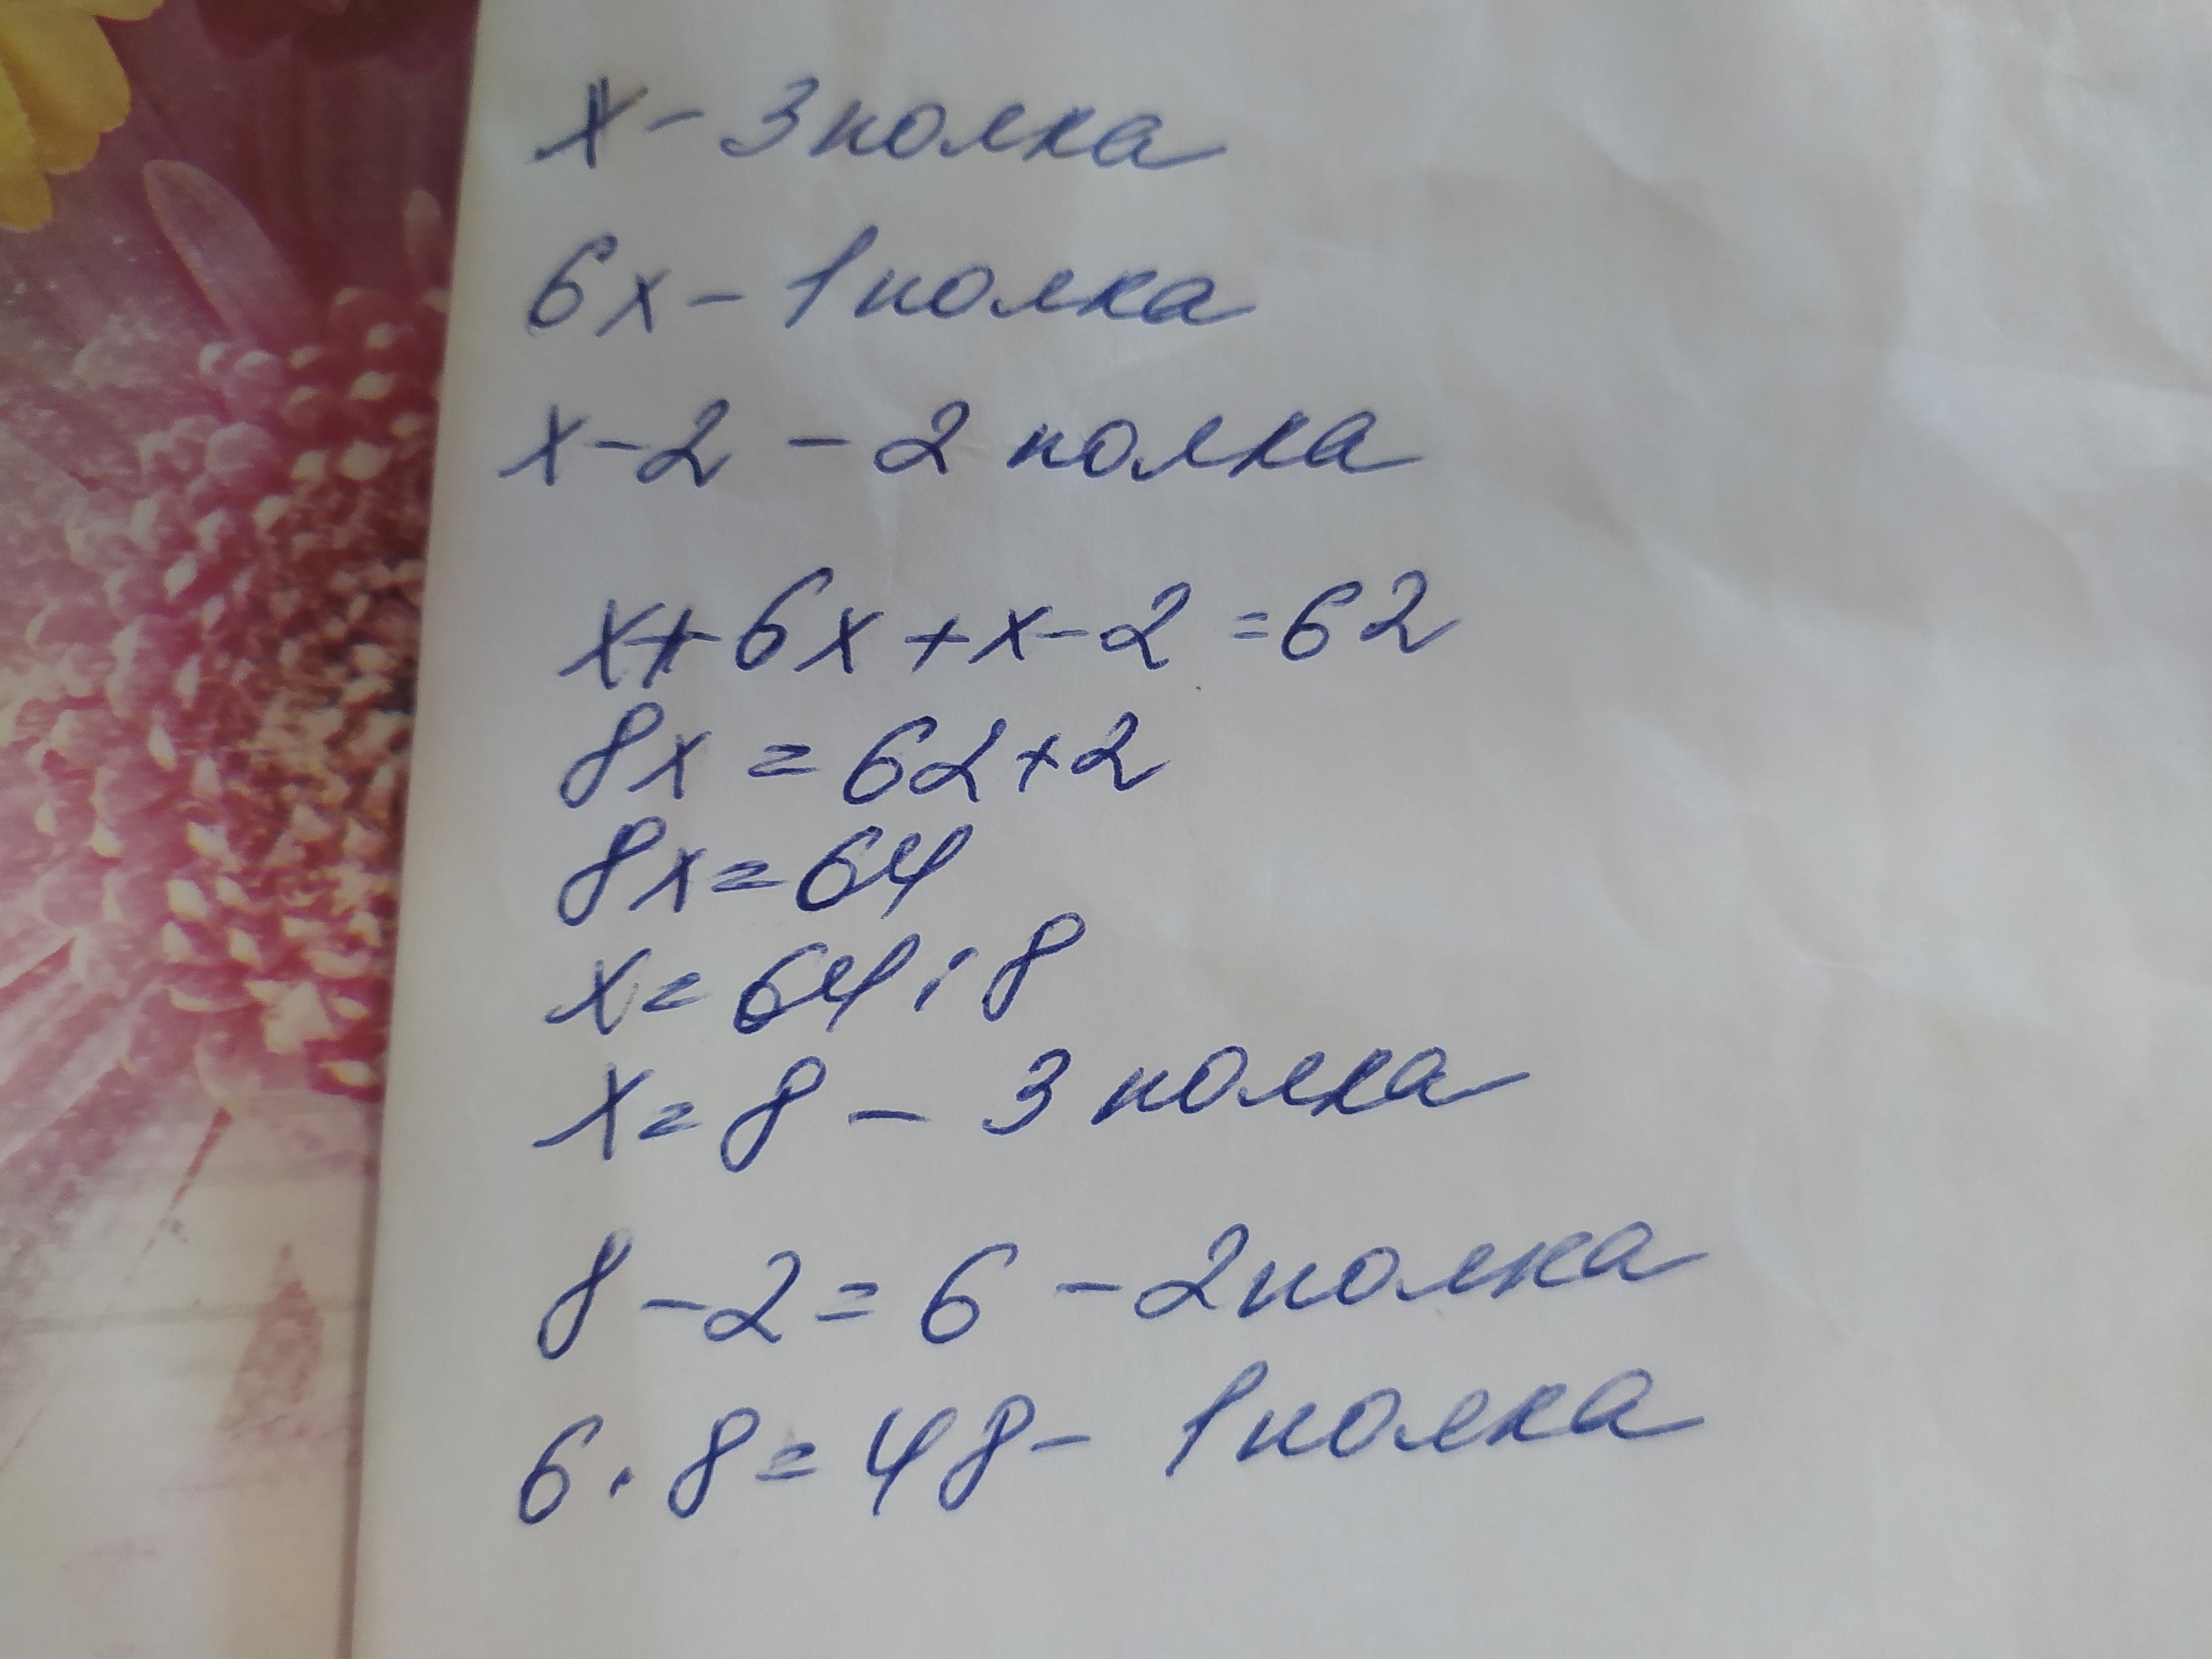 x - 3 полка
6x - 1 полка
x - 2 - 2 полка
x + 6x + x - 2 = 62
8x = 62 + 2
8x = 64
x = 64 : 8
x = 8 - 3 полка
8 - 2 = 6 - 2 полка
6 · 8 = 48 - 1 полка